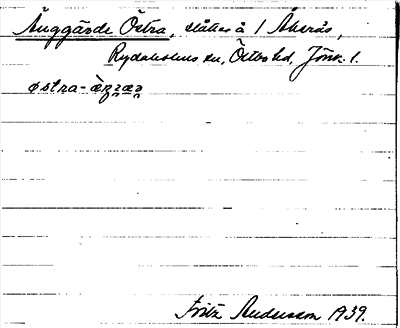 Änggärde Östra, slåtter å 1 Åkerås,
Rydaholms sn, Östbo hd, Jönk. l.
østra-
Fritz Andersson 1939.